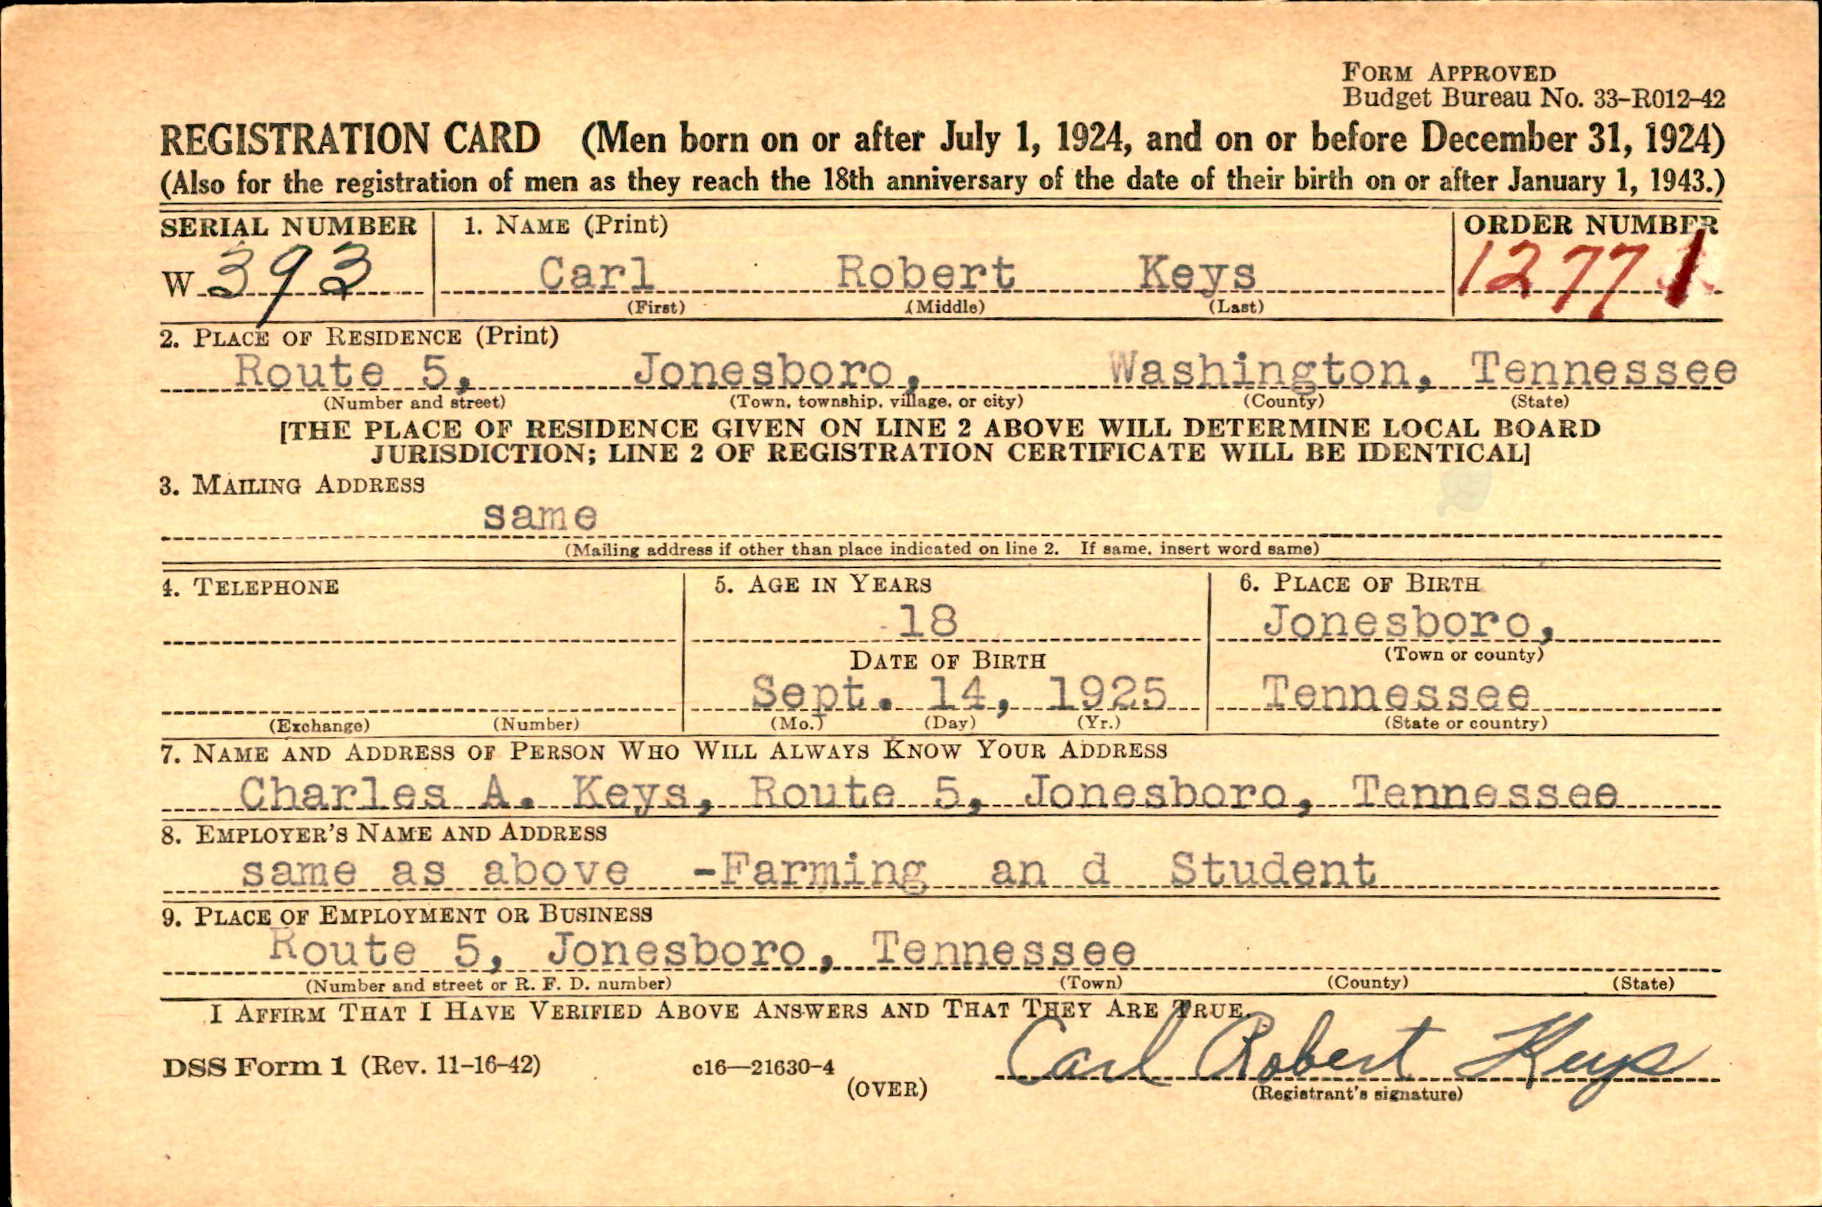 FORM APPROVED
Budget Bureau No. 33-R012-42
REGISTRATION CARD (Men born on or after July 1, 1924, and on or before December 31, 1924)
(Also for the registration of men as they reach the 18th anniversary of the date of their birth on or after January 1, 1943.)
SERIAL NUMBER 1. NAME (Print) ORDER NUMBER
W 393 Carl Robert Keys 1277
(First) (Middle) (Last)
2. PLACE OF RESIDENCE (Print)
Route 5, Jonesboro, Washington, Tennessee
(Number and street) (Town, township, village, or city) (County) (State)
[THE PLACE OF RESIDENCE GIVEN ON LINE 2 ABOVE WILL DETERMINE LOCAL BOARD
JURISDICTION; LINE 2 OF REGISTRATION CERTIFICATE WILL BE IDENTICAL]
3. MAILING ADDRESS
same
(Mailing address if other than place indicated on line 2. If same, insert word same)
4. TELEPHONE 5. AGE IN YEARS 6. PLACE OF BIRTH
18 Jonesboro,
DATE OF BIRTH (Town or county)
Sept. 14, 1925 Tennessee
(Exchange) (Number) (Mo.) (Day) (Yr.) (State or country)
7. NAME AND ADDRESS OF PERSON WHO WILL ALWAYS KNOW YOUR ADDRESS
Charles A. Keys, Route 5, Jonesboro, Tennessee
8. EMPLOYER'S NAME AND ADDRESS
same as above -Farming an d Student
9. PLACE OF EMPLOYMENT OR BUSINESS
Route 5, Jonesboro, Tennessee
(Number and street or R. F. D. number) (Town) (County) (State)
I AFFIRM THAT I HAVE VERIFIED ABOVE ANSWERS AND THAT THEY ARE TRUE.
DSS Form 1 (Rev. 11-16-42) c16—21630-4 Carl Robert Keys
(OVER) (Registrant's signature)